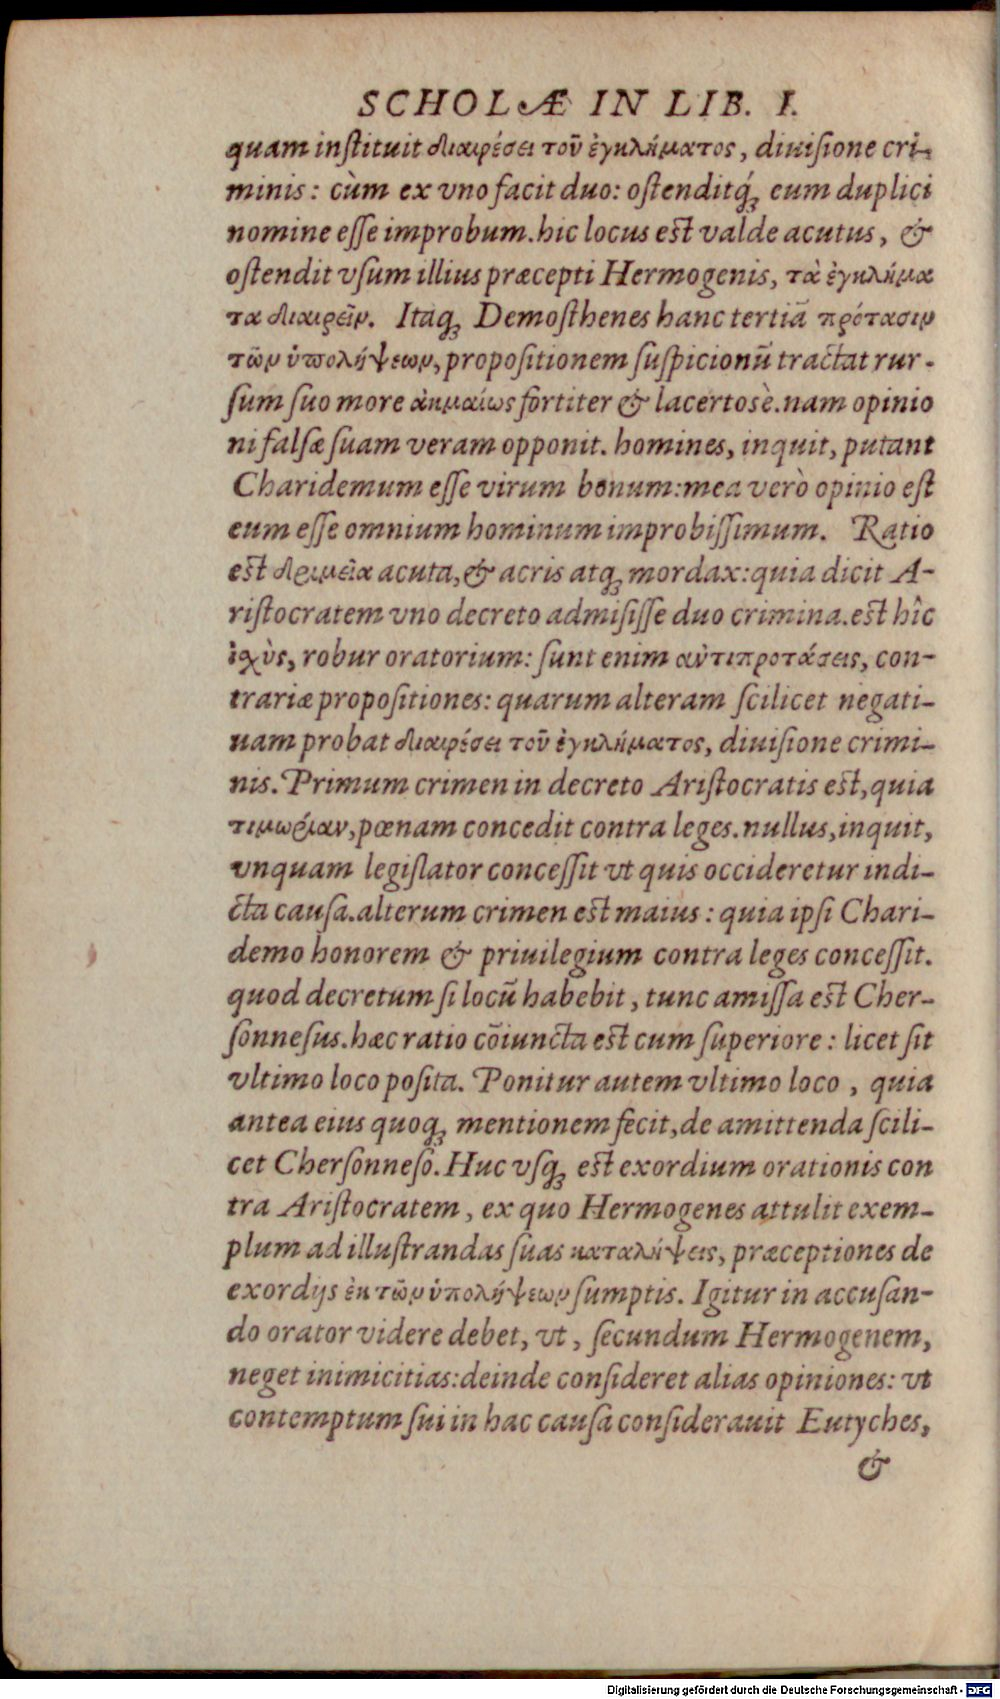 SCHOLÆ IN LIB. I.
quam inſtituit διαιρέσει τοῦ ἐγκλήματος, diuiſione cri-
minis: cùm ex vno facit duo: oſtenditq́ꝫ eum duplici
nomine eſſe improbum. hic locus est valde acutus, &
oſtendit vſum illius præcepti Hermogenis, τὰ ἐγκλήμα
τα διαιρεῖν. Itaqꝫ Demoſthenes hanc tertiã πρότασιν
τῶν ὑπολήψεων, propoſitionem ſuſpicionũ tractat rur-
ſum ſuo more ἀκμαίως fortiter & lacertosè. nam opinio
ni falſæ ſuam veram opponit. homines, inquit, putant
Charidemum eſſe virum bonum: mea verò opinio eſt
eum eſſe omnium hominum improbiſſimum. Ratio
est δριμεῖα acuta, & acris atqꝫ mordax: quia dicit A-
riſtocratem vno decreto admiſiſſe duo crimina. est hîc
ἰχὺς, robur oratorium: ſunt enim αὐτιπροτάσεις, con-
trariæ propoſitiones: quarum alteram ſcilicet negati-
uam probat διαιρέσει τοῦ ἐγκλήματος, diuiſione crimi-
nis. Primum crimen in decreto Ariſtocratis est, quia
τιμωρίαν, pœnam concedit contra leges. nullus, inquit,
vnquam legiſlator conceſſit vt quis occideretur indi-
cta cauſa. alterum crimen est maius: quia ipſi Chari-
demo honorem & priuilegium contra leges conceſſit.
quod decretum ſi locũ habebit, tunc amiſſa est Cher-
ſonneſus. hæc ratio cõiuncta est cum ſuperiore: licet ſit
vltimo loco poſita. Ponitur autem vltimo loco, quia
antea eius quoqꝫ mentionem fecit, de amittenda ſcili-
cet Cherſonneſo. Huc vſqꝫ est exordium orationis con
tra Ariſtocratem, ex quo Hermogenes attulit exem-
plum ad illuſtrandas ſuas καταλήψεις, præceptiones de
exordijs ἐκ τῶν ὑπολήψεων ſumptis. Igitur in accuſan-
do orator videre debet, vt, ſecundum Hermogenem,
neget inimicitias: deinde conſideret alias opiniones: vt
contemptum ſui in hac cauſa conſiderauit Eutyches,
&
Digitalisierung gefördert durch die Deutsche Forschungsgemeinschaft - DFG